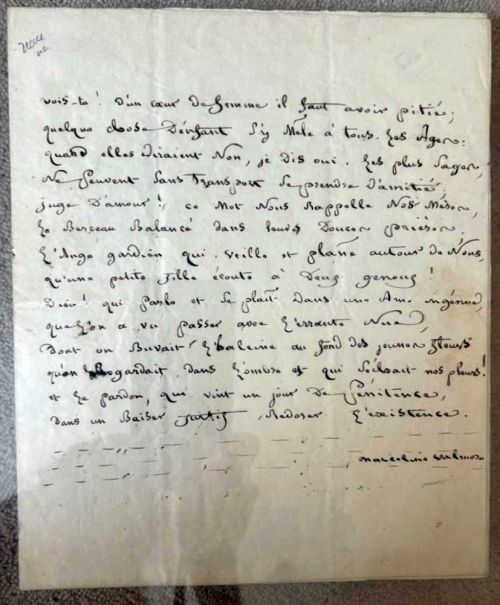 vois-tu ! D'un cœur de femme il faut avoir pitié ;
quelque chose D'Enfant s'y Mêle à tous Les Âges :
quand elles diraient Non, je Dis oui . Les plus Sages,
Ne Peuvent Sans Transport Se prendre D'amitié,
juge D'amour ! ce Mot Nous Rappelle Nos Mères,
Le Berceau Balancé dans leurs Douces prières
L'Ange gardien qui Veille et plane autour de Nous,
qu'une petite fille écoute à Deux genoux !
Dieu ! qui parle et Se plait Dans une Ame ingénue,
que L'on a vu passer avec L'errante Nue,
Dont on Buvait L'haleine au fond des jeunes fleurs
qu'on Regardait dans L'ombre et qui Séchait nos pleurs !
et Le pardon, qui vint un jour De Pénitence,
dans un Baiser furtif Redorer L'existence.
Marceline Valmore